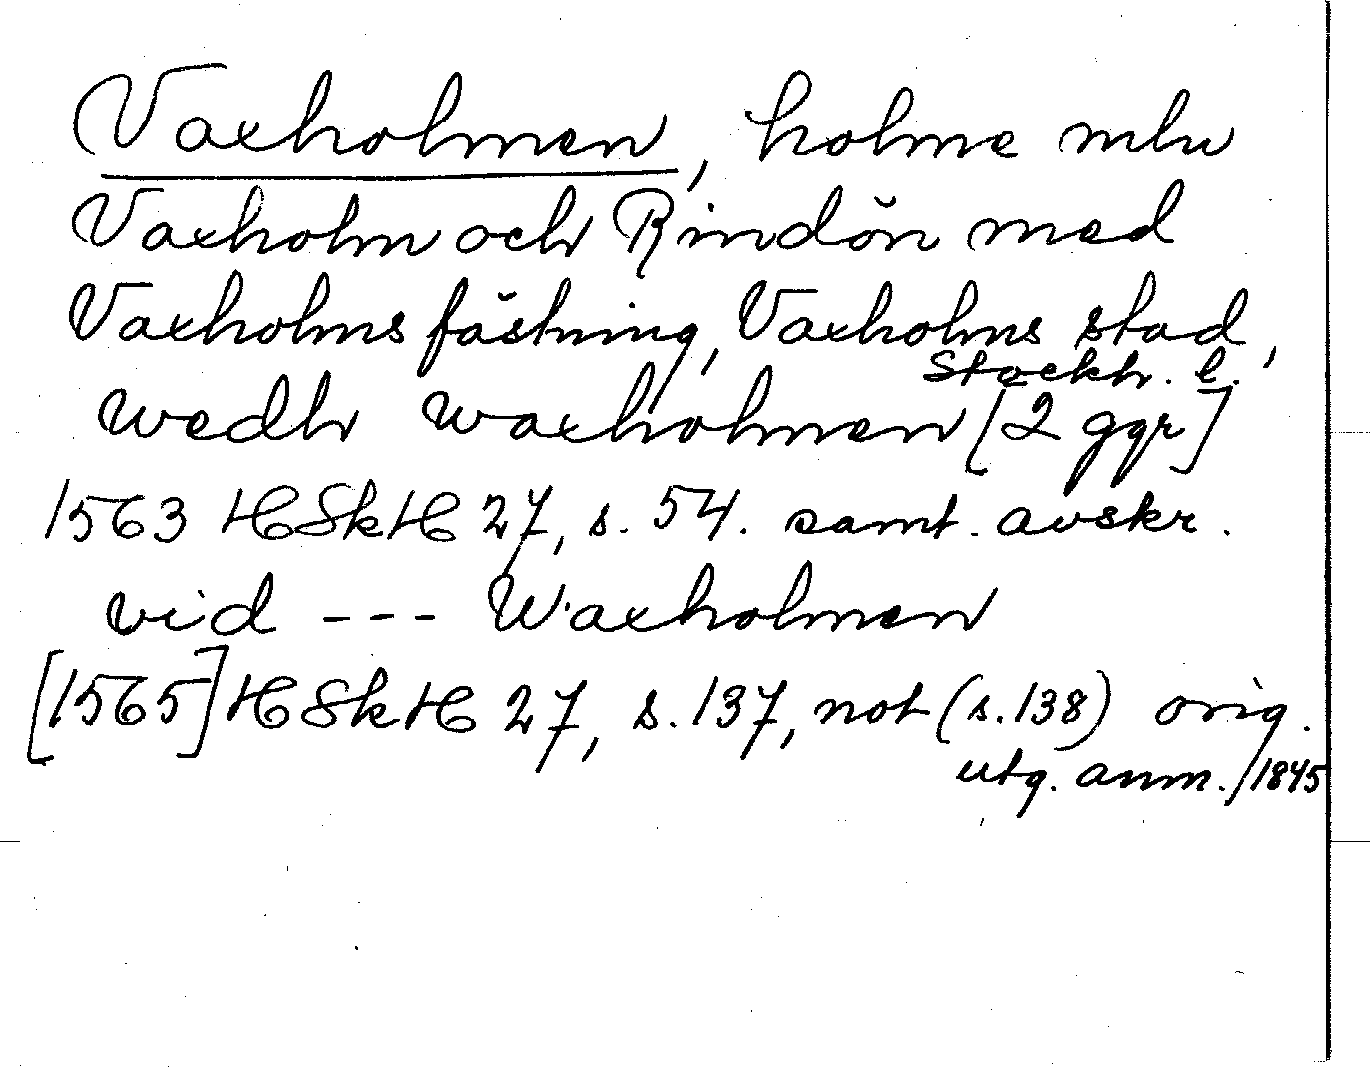 Vaxholmen, holme mln
Vaxholm och Rindön med
Vaxholms fästning, Vaxholms stad,
Stockh. l.
wedh waxholmen [2 ggr]
1563 HSkH 27, s. 54. samt. avskr.
vid --- Waxholmen
[1565] HSkH 27, s. 137, not (s. 138) orig.
utg. anm. / 1845